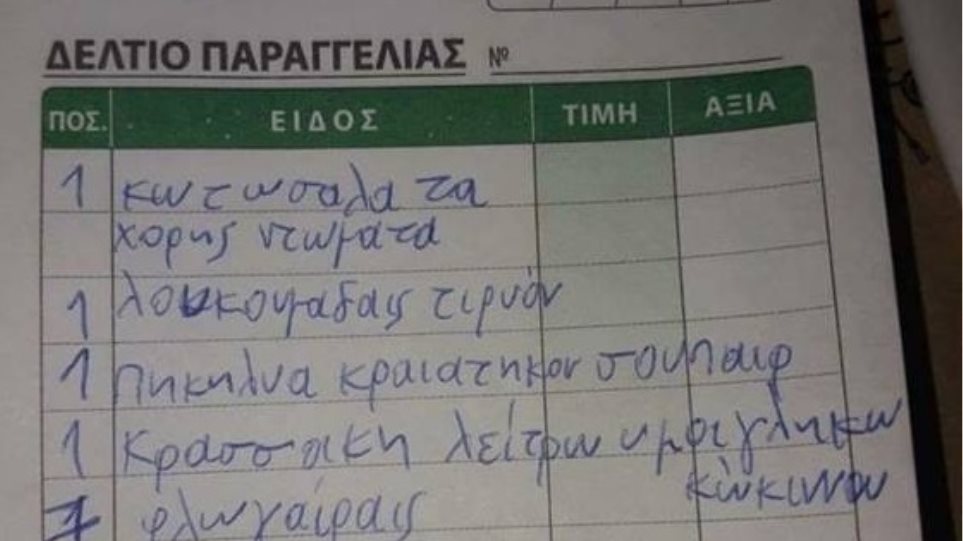 ΔΕΛΤΙΟ ΠΑΡΑΓΓΕΛΙΑΣ Νº
ΠΟΣ. ΕΙΔΟΣ ΤΙΜΗ ΑΞΙΑ
1 κωτωσαλα τα
χορης ντωματα
1 λουκουμαδαις τιρυόν
1 πηκηλυα κραιατηκον σουπαιρ
1 κρασσακη λείτρω ημφιγληκω
κώκινου
1 φλωγαίραις